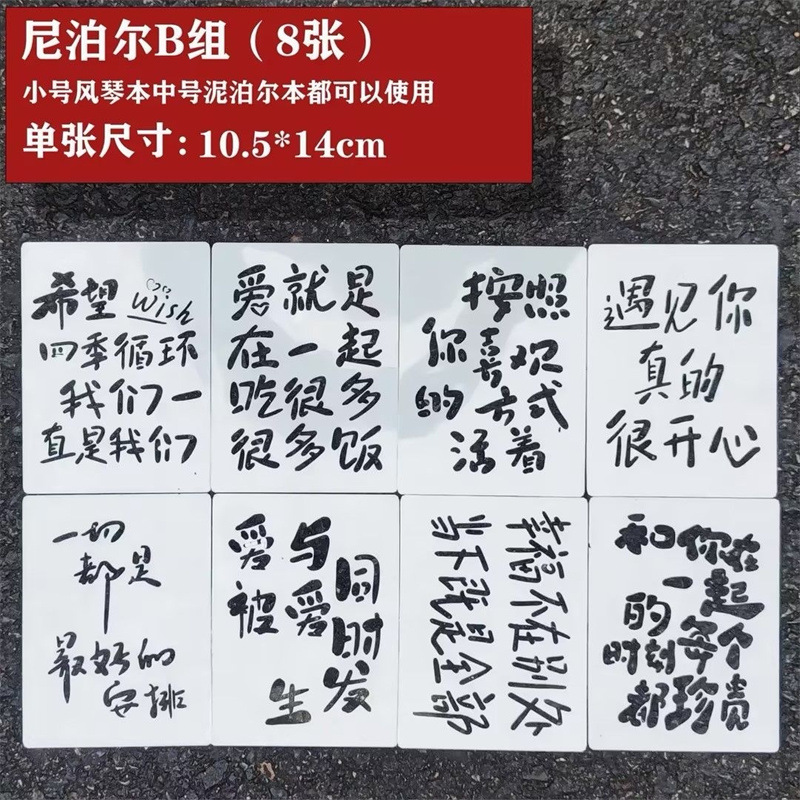 尼泊尔B组（8张）
小号风琴本中号泥泊尔本都可以使用
单张尺寸：10.5*14cm
希望 Wish
四季循环
我们一
直是我们
爱就是
在一起
吃很多
很多饭
按照
你喜欢
的方式
活着
遇见你
真的
很开心
一切
都是
最好的
安排
爱与
被爱
同时发
生
幸福不在别处
当下既是全部
和你在
一起
的
时刻每个
都珍贵